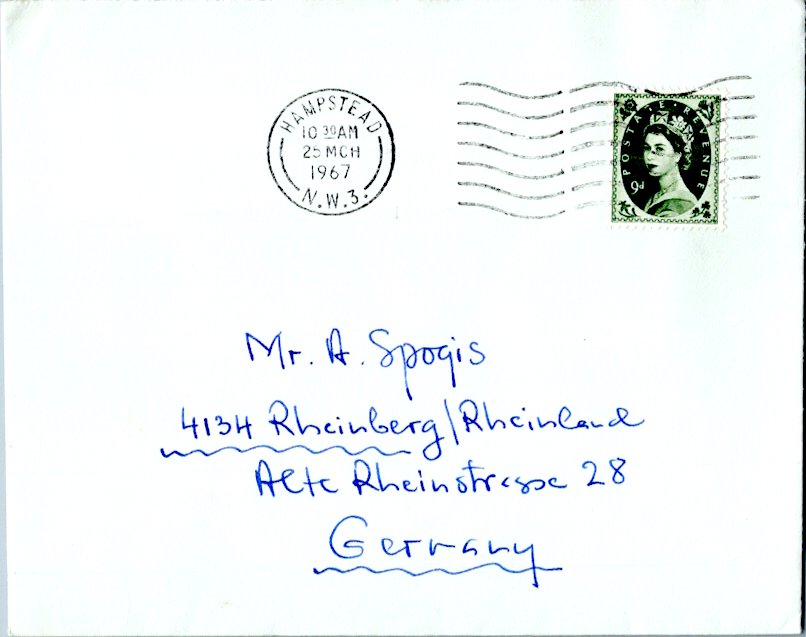 HAMPSTEAD
10 30 AM
25 MCH
1967
N.W.3.
POSTAGE REVENUE
9d
Mr. A. Spogis
4134 Rheinberg/Rheinland
Alte Rheinstrasse 28
Germany